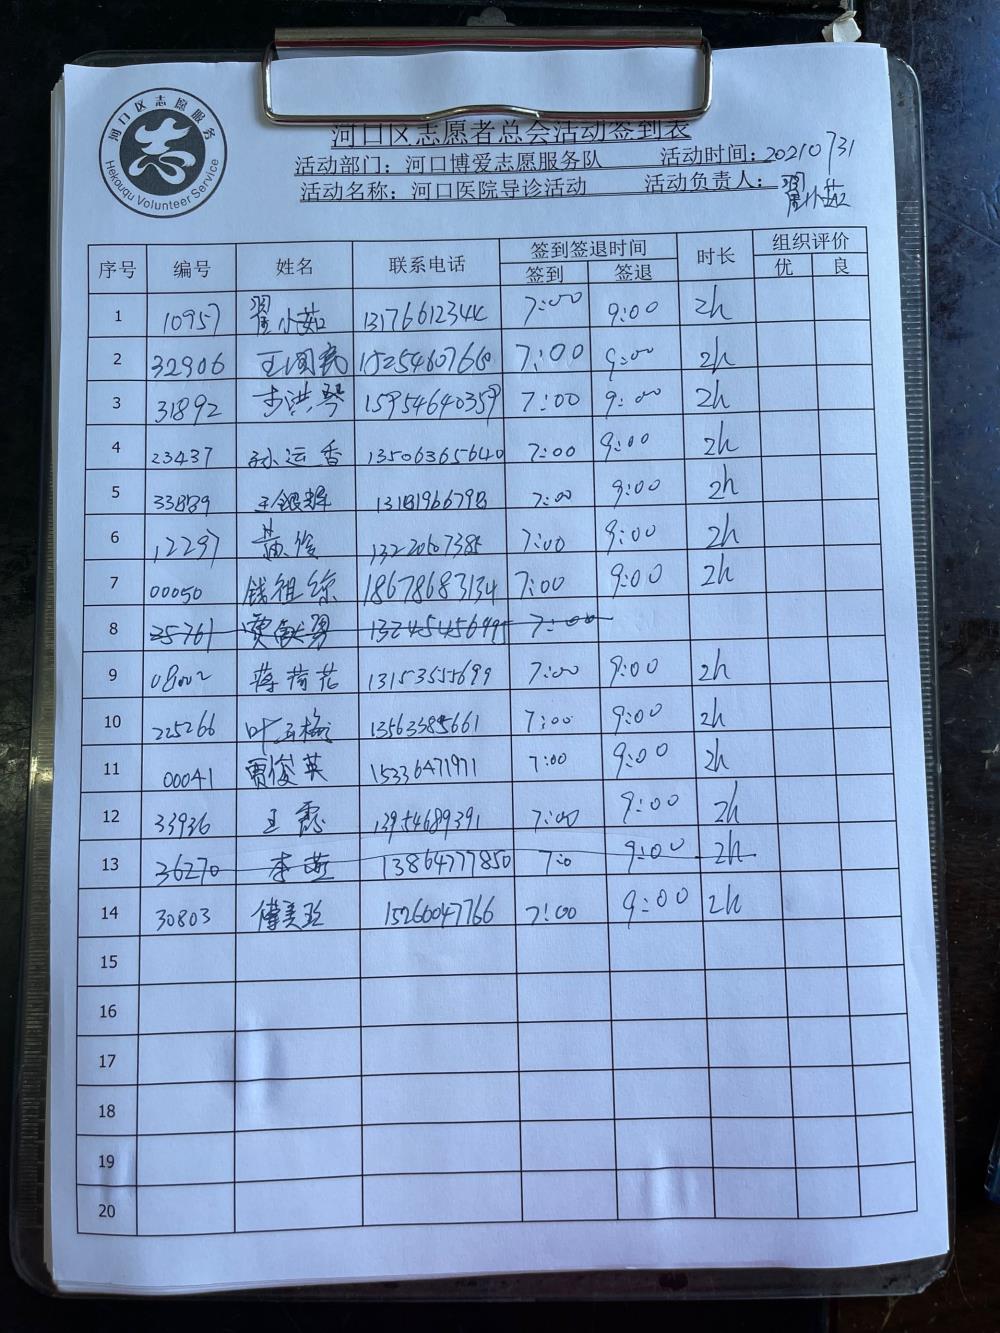 河口区志愿服务
Hekouqu Volunteer Service
河口区志愿者总会活动签到表
活动部门：河口博爱志愿服务队 活动时间：20210731
活动名称：河口医院导诊活动 活动负责人：翟小茹
序号 编号 姓名 联系电话 签到签退时间 时长 组织评价
签到 签退 优 良
1 10957 翟小茹 13176612344 7:00 9:00 2h
2 32906 王国民 15254607660 7:00 9:00 2h
3 31892 李洪琴 15954640359 7:00 9:00 2h
4 23437 孙运香 13506365640 7:00 9:00 2h
5 33889 王银辉 13181966798 7:00 9:00 2h
6 12297 黄俊 13220507385 7:00 9:00 2h
7 00050 钱祖综 18678683134 7:00 9:00 2h
8 35761 7:00
9 蒋荷花 13153555699 7:00 9:00 2h
10 225266 叶玉梅 13563385661 7:00 9:00 2h
11 00041 贾俊英 15336471971 7:00 9:00 2h
12 33936 王霞 13954689391 7:00 9:00 2h
13 36270 李燕 13864777850 7:0 9:00 2h
14 30803 傅美玲 15266047766 7:00 9:00 2h
15
16
17
18
19
20